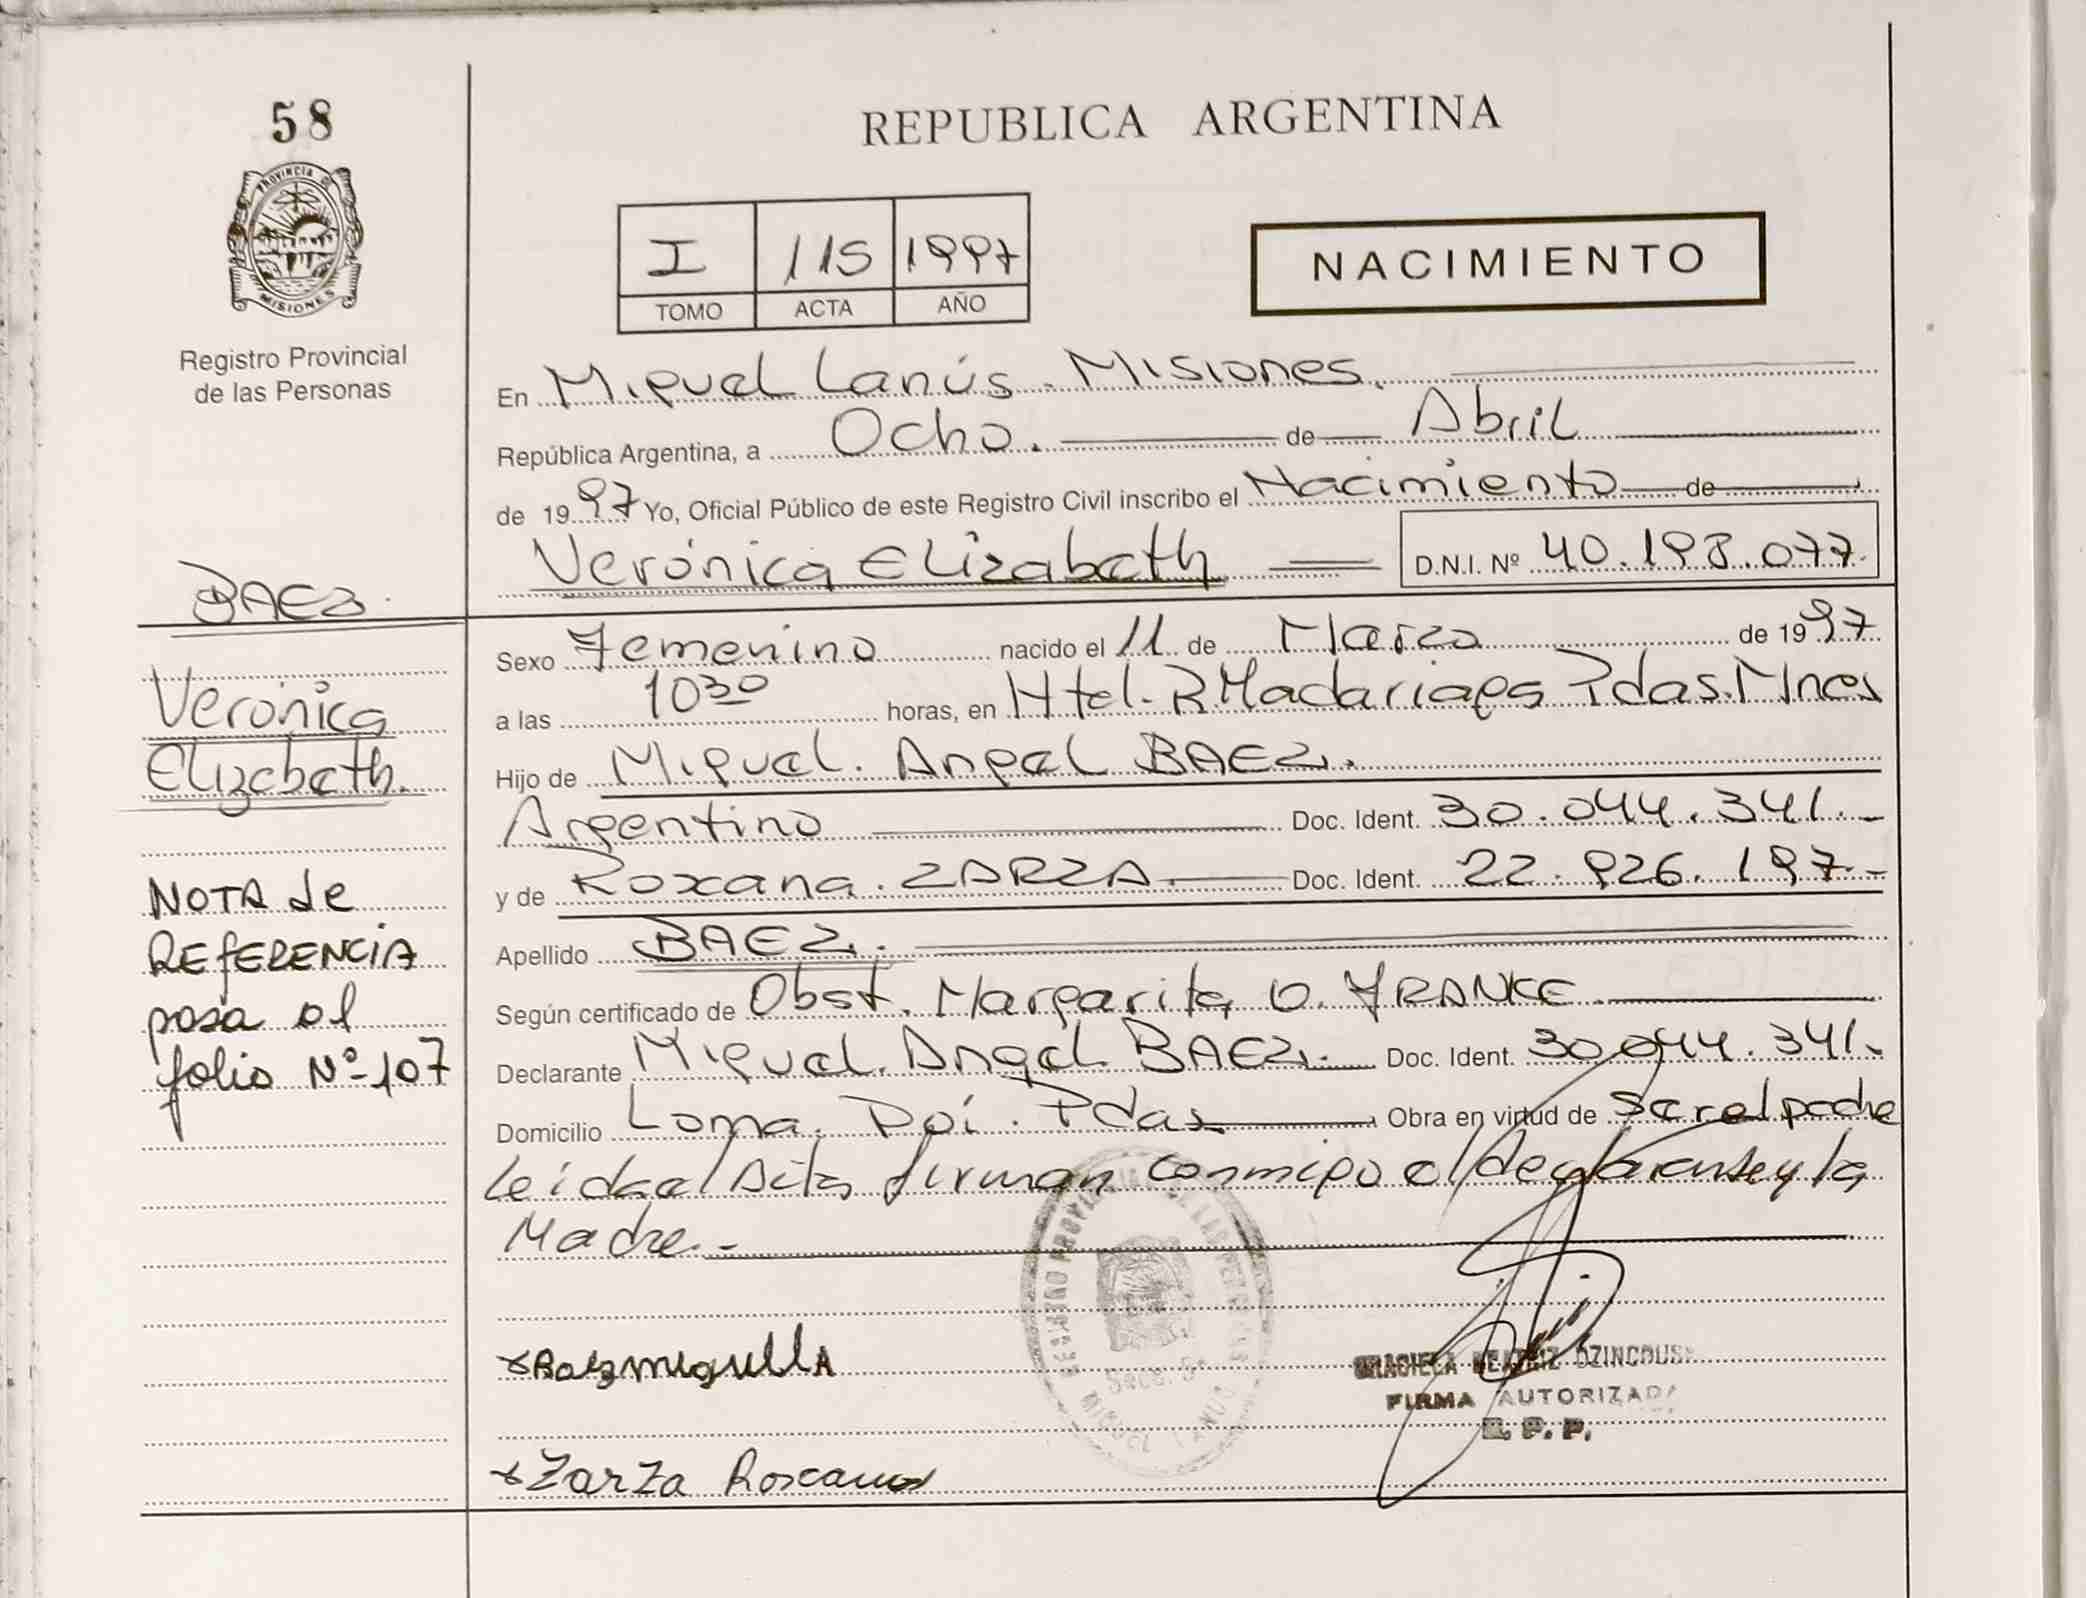 58
PROVINCIA DE
MISIONES
Registro Provincial
de las Personas
REPUBLICA ARGENTINA
I 115 1997
TOMO ACTA AÑO
NACIMIENTO
En Miguel Lanús. Misiones.
República Argentina, a Ocho. de Abril
de 1997 Yo, Oficial Público de este Registro Civil inscribo el Nacimiento de
Verónica Elizabeth D.N.I. Nº 40.198.077.
BAEZ.
Verónica
Elizabeth.
NOTA de
REfERENCIA
pasa al
folio Nº-107
Sexo Femenino nacido el 11 de Marzo de 1997
a las 10 30 horas, en Htal. R Madariaga Pdas. Mnes
Hijo de Miguel. Angel BAEZ.
Argentino Doc. Ident. 30.044.341.-
y de Roxana. ZARZA. Doc. Ident. 22.926.197.-
Apellido BAEZ.
Según certificado de Obst. Margarita O. FRANKE
Declarante Miguel. Angel BAEZ. Doc. Ident. 30.044.341.-
Domicilio Loma. Poí. Pdas Obra en virtud de Ser el padre
Leida el Acta, firman conmigo el declarante y la
Madre.-
xBaez miguel A
GRACIELA BEATRIZ
FIRMA AUTORIZADA
R. P. P.
MIGUEL LANUS
xZarza Roxana